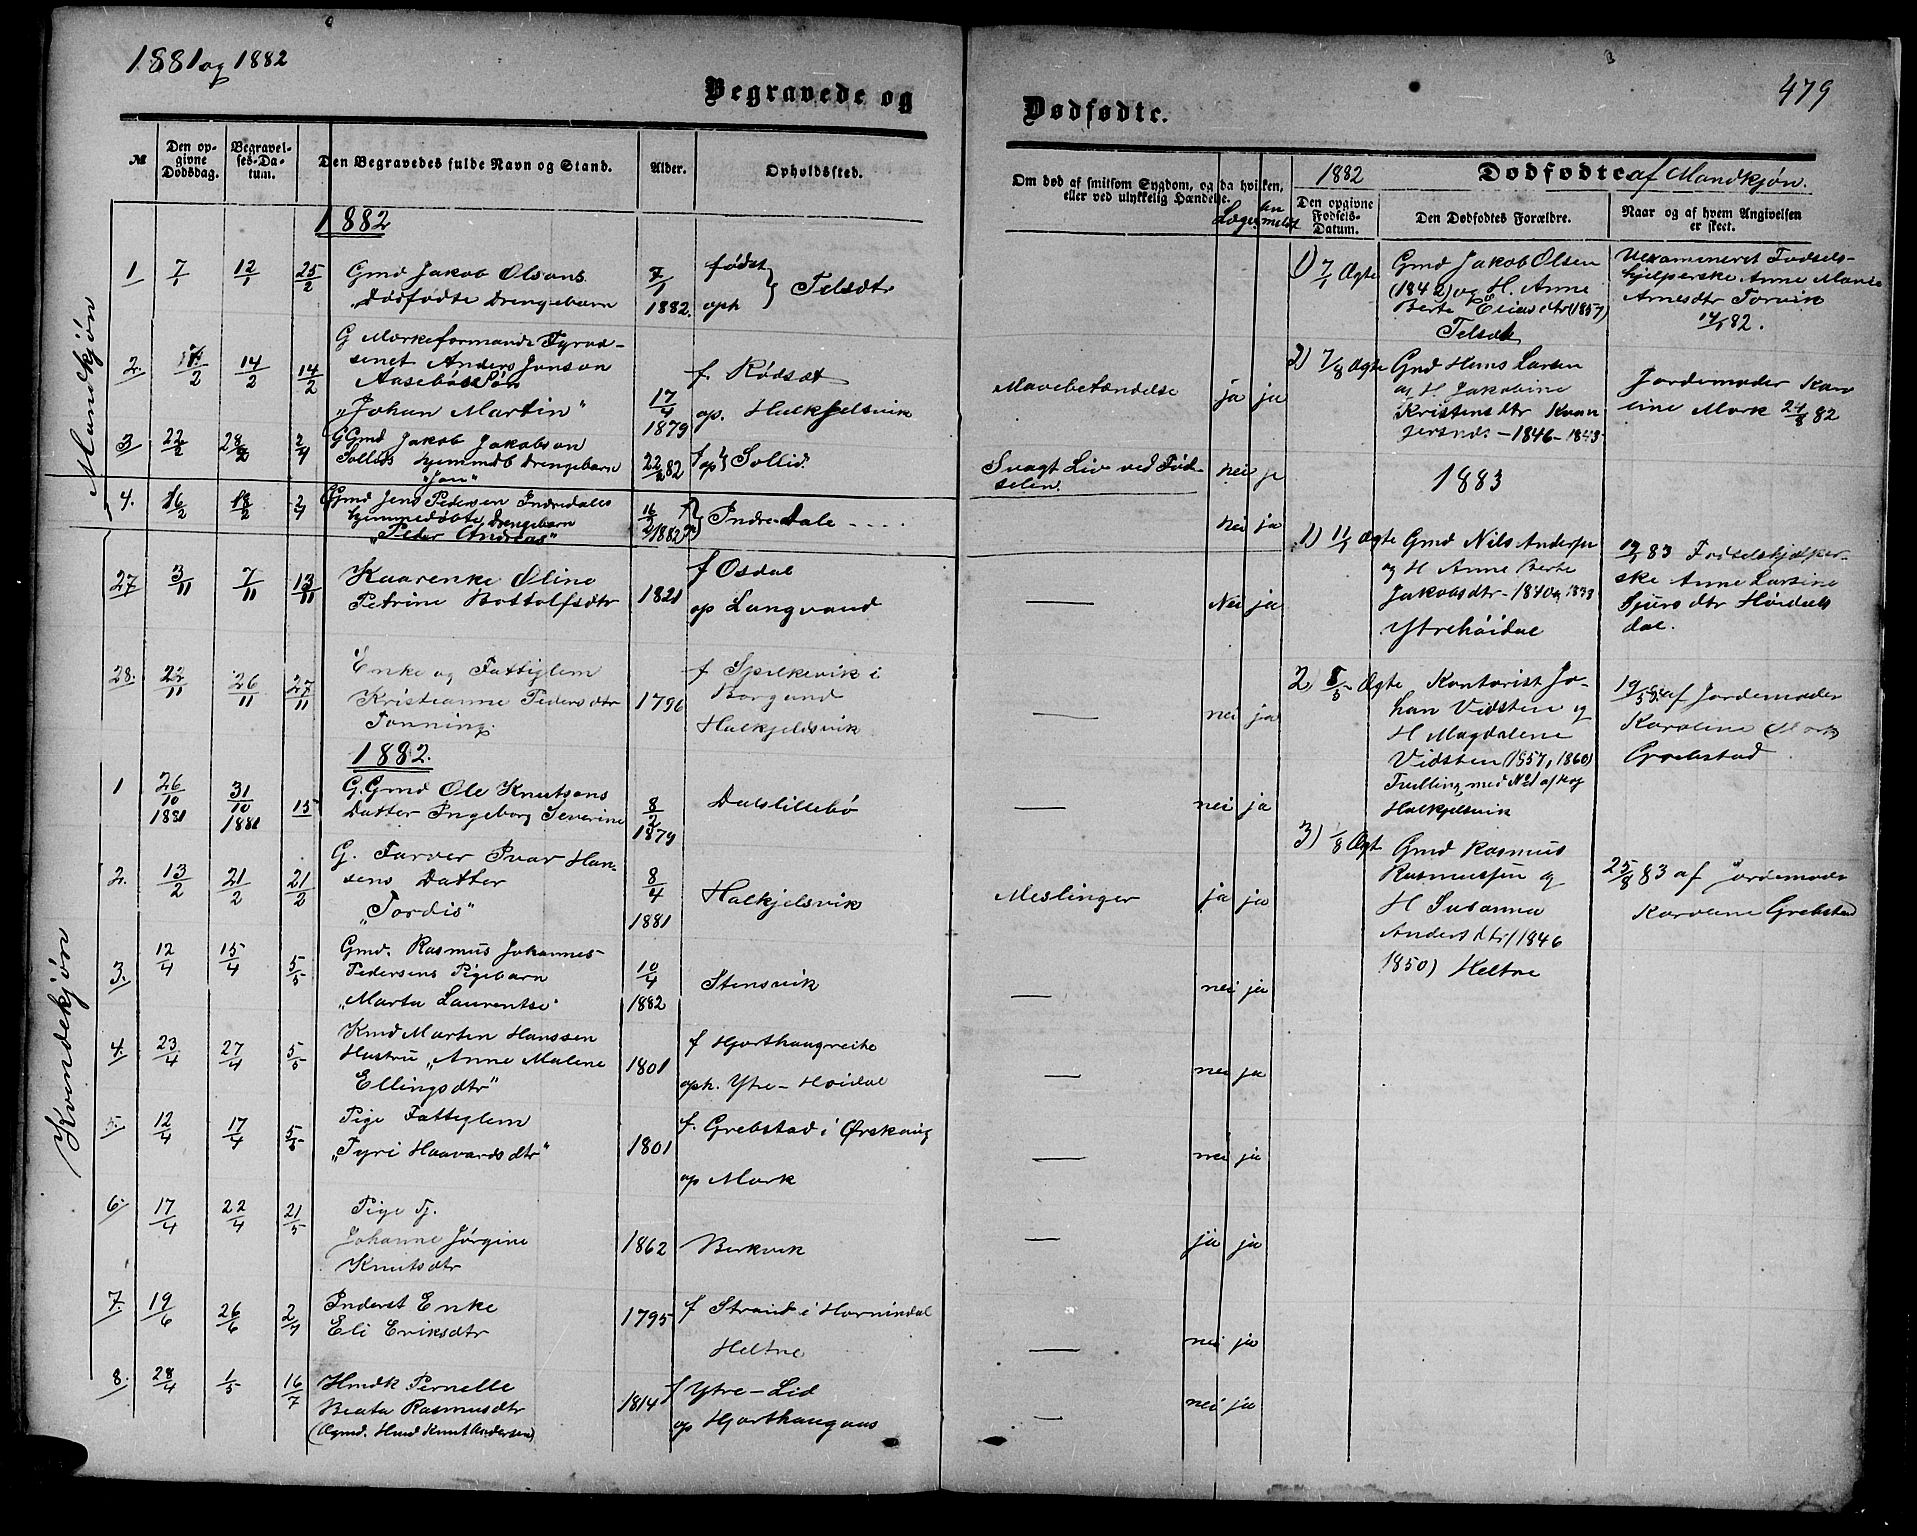 1881 og 1882
Begravede og
Dødfødte.
479
№
Den opgivne Dødsdag.
Begravelses-Datum.
Den Begravedes fulde Navn og Stand.
Alder.
Opholdssted.
Om død af smitsom Sygdom, og da hvilken,
eller ved ulykkelig Hændelse.
Læge
anmeldt
1882
Dødfødte af Mandkjøn.
Den opgivne Fødsels-Datum.
Den Dødfødtes Forældre.
Naar og af hvem Angivelsen
er skeet.
Mandkjøn
1882
1 7/1 12/1 25/2 Gmd Jakob Olsens 7/1 født
Dødfødte Drengebarn 1882. oph } Telsætr
2. 14/2 14/2 G Mærkeformand
Anders Jonson
Aasebøs Søn 17/4 f. Rødsæt
"Johan Martin" 1879 op. Halkjelsvik
Mavebetændelse ja ja
3 22/2 28/2 2/4 G Gmd Jakob Jakobson
hjemmedb Drengebarn 22/2 82 f op } Sollid.
"Jon"
Svagt Liv ved Fød-
selen. nei ja
4. 16/2 18/2 2/4 Gmd Jens Pedersen Indredales
hjemmedøbte Drengebarn 16/2 1882 } Indre-Dale
"Peder Andreas"
nei ja
Kvindekjøn
27 3/11 7/11 13/11 Kaarenke Oline f Osdal
Petrine Bottolfsdtr 1821 op Langvand
— Nei ja
28. 22/11 26/11 27/11 Enke og Fattiglem f Spilkevik i
Kristianne Pedersdtr 1796 Borgund
Tonning. Halkjeldsvik
— nei ja
1882.
1 26/10 1881 31/10 1881 15 G. Gmd Ole Knutsons 8/2 Dalslillebø
Datter Ingeborg Severine 1879
— nei ja
2. 13/2 21/2 21/2 G. Farver Ivar Han-
sens Datter 8/4 Halkjelsvik
"Tordis" 1881
Meslinger ja ja
3. 12/4 15/4 5/5 Gmd. Rasmus Johannes-
Pedersens Pigebarn 10/4 Stensvik
"Marta Laurentse" 1882
— nei ja
4. 23/4 27/4 5/5 Kmd Marten Hanssen f Hjorthaugreite
Hustru "Anne Malene 1801
Ellingsdtr" oph. Ytre-Høidal
— nei ja
5. 12/4 17/4 5/5 Pige Fattiglem f. Grebstad i Ørskaug
"Tyri Haavardsdtr" 1801 op Mork
— nei ja
6. 17/4 22/4 21/5 Pige Tj.
Johanne Jørgine 1862 Berkvik
Knutsdtr
— ja ja
7. 19/6 26/6 2/7 Inderst Enke 1795 f Strand i Hornindal
Eli Eriksdtr Heltne
— nei ja
8. 28/4 1/5 16/7 Hmdk Pernelle f Ytre-Lid
Beata Rasmusdtr 1814 op Hjorthaugaas
(Gmd. Hmd Knut Andersen)
— nei ja
1) 7/1 Ægte Gmd Jakob Olsen
(1842) og H. Anne
Berte Eliasdtr (1857)
Telsæt
Uexamineret Fødsels-
hjelperske Anne Marie
Arnesdtr Torvik
14/1 82.
2) 7/8 Ægte Gmd Hans Larsen
og H. Jakobine
Kristensdtr
-1846-1843-
Jordemoder Karo
line Mork 24/8 82
1883
1) 11/1 Ægte Gmd Nils Andersen
og H Anne Berte
Jakobsdtr-1840 og 1838
Ytrehöidal
83 Fødselshjelper-
ske Anne Larsine
Sjursdtr Høidals
dal.
2) 5/5 Ægte Kontorist Jo-
han Vidsten og
H Magdalene
Vidsten (1857, 1860)
Tvilling, med
Halkjelsvik
19/5 af Jordemoder
Karoline Mork
Grebstad
3) 1/8 Ægt Gmd Rasmus
Rasmussen og
H Susanna
Andersdtr (1846
1850) Heltne
25/8 83 af Jordemoder
Karoline Grebstad